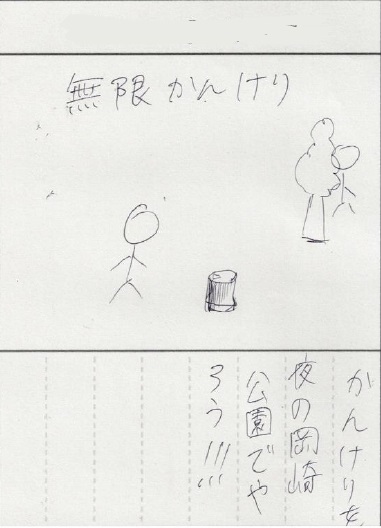 無限かんけり
かんけりを
夜の岡崎
公園でや
ろう!!!!!